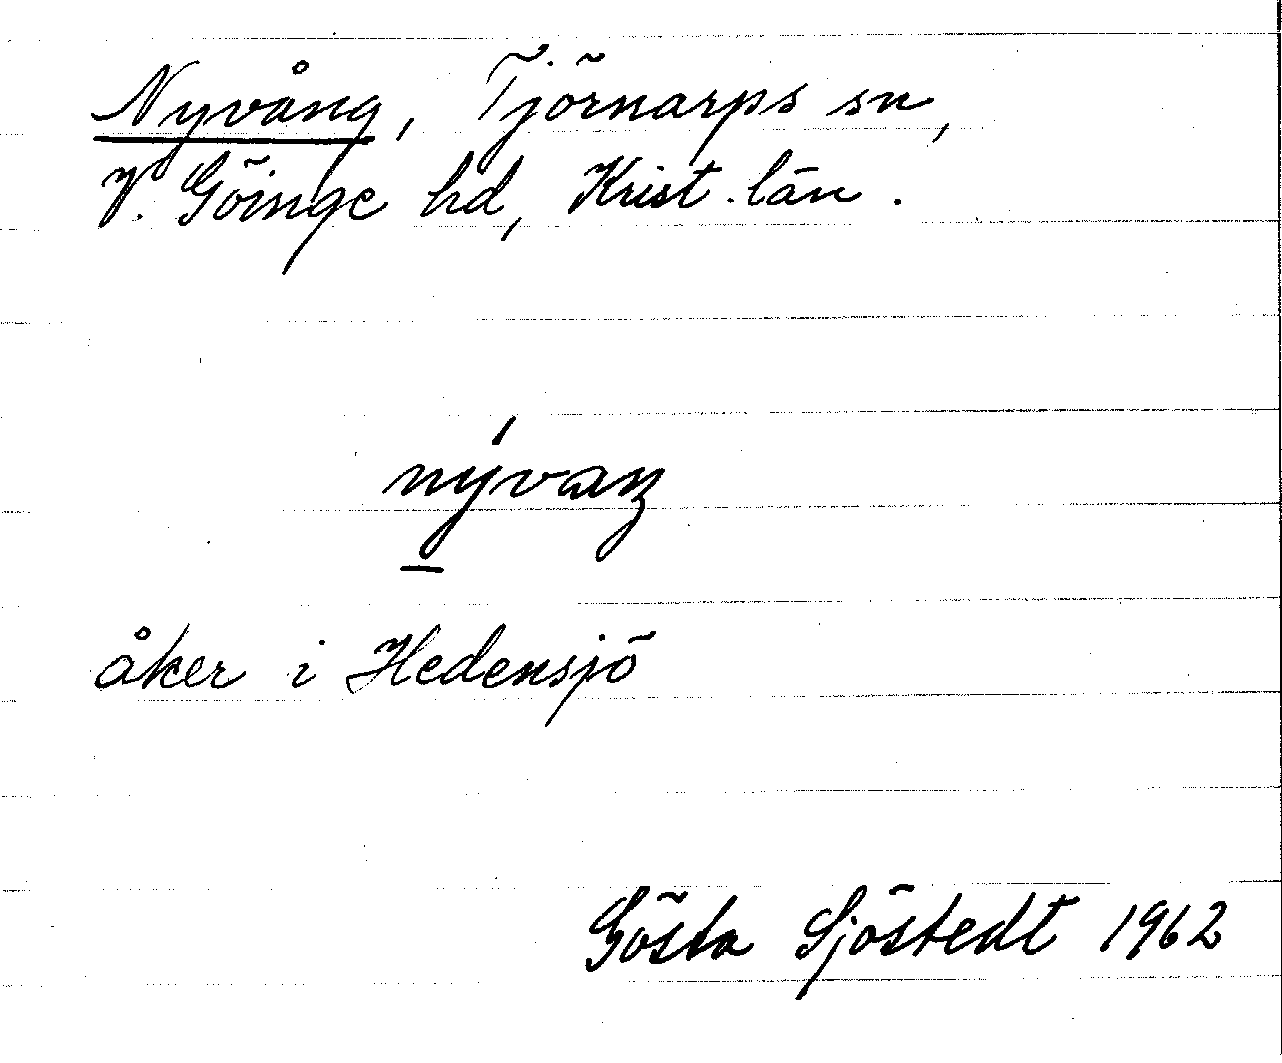 Nyvång, Tjörnarps sn,
V. Göinge hd, Krist. län.
nývaŋ
åker i Hedensjö
Gösta Sjöstedt 1962